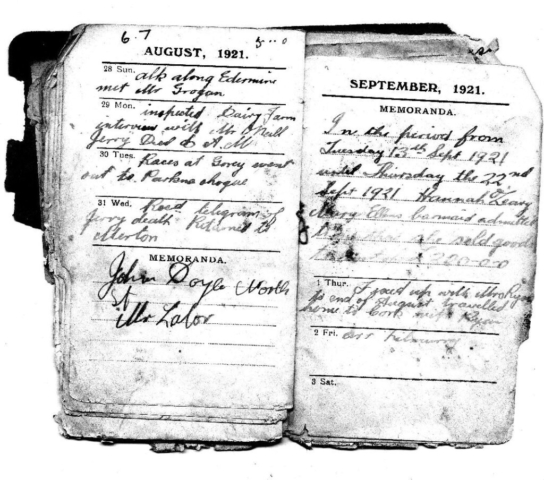 6.7
AUGUST, 1921.
28 Sun. along Edermine
met Mr Grogan
29 Mon. inspected Dairy Farm
interview with Mr Neill
Jerry Died 6 A.M
30 Tues. Races at Gorey went
out to Parkna
31 Wed. Read telegram of
Jerry death Returned to
Merton
MEMORANDA.
John Doyle
Mr Lalor
SEPTEMBER, 1921.
MEMORANDA.
In the period from
Tuesday 13th Sept 1921
until Thursday the 22nd
Sept 1921 Hannah Leary
Mary Ellens barmaid admitted
sold goods
220-0-0
1 Thur. up with Mrs Ryan
to end of August travelled
home to Cork with
2 Fri.
3 Sat.